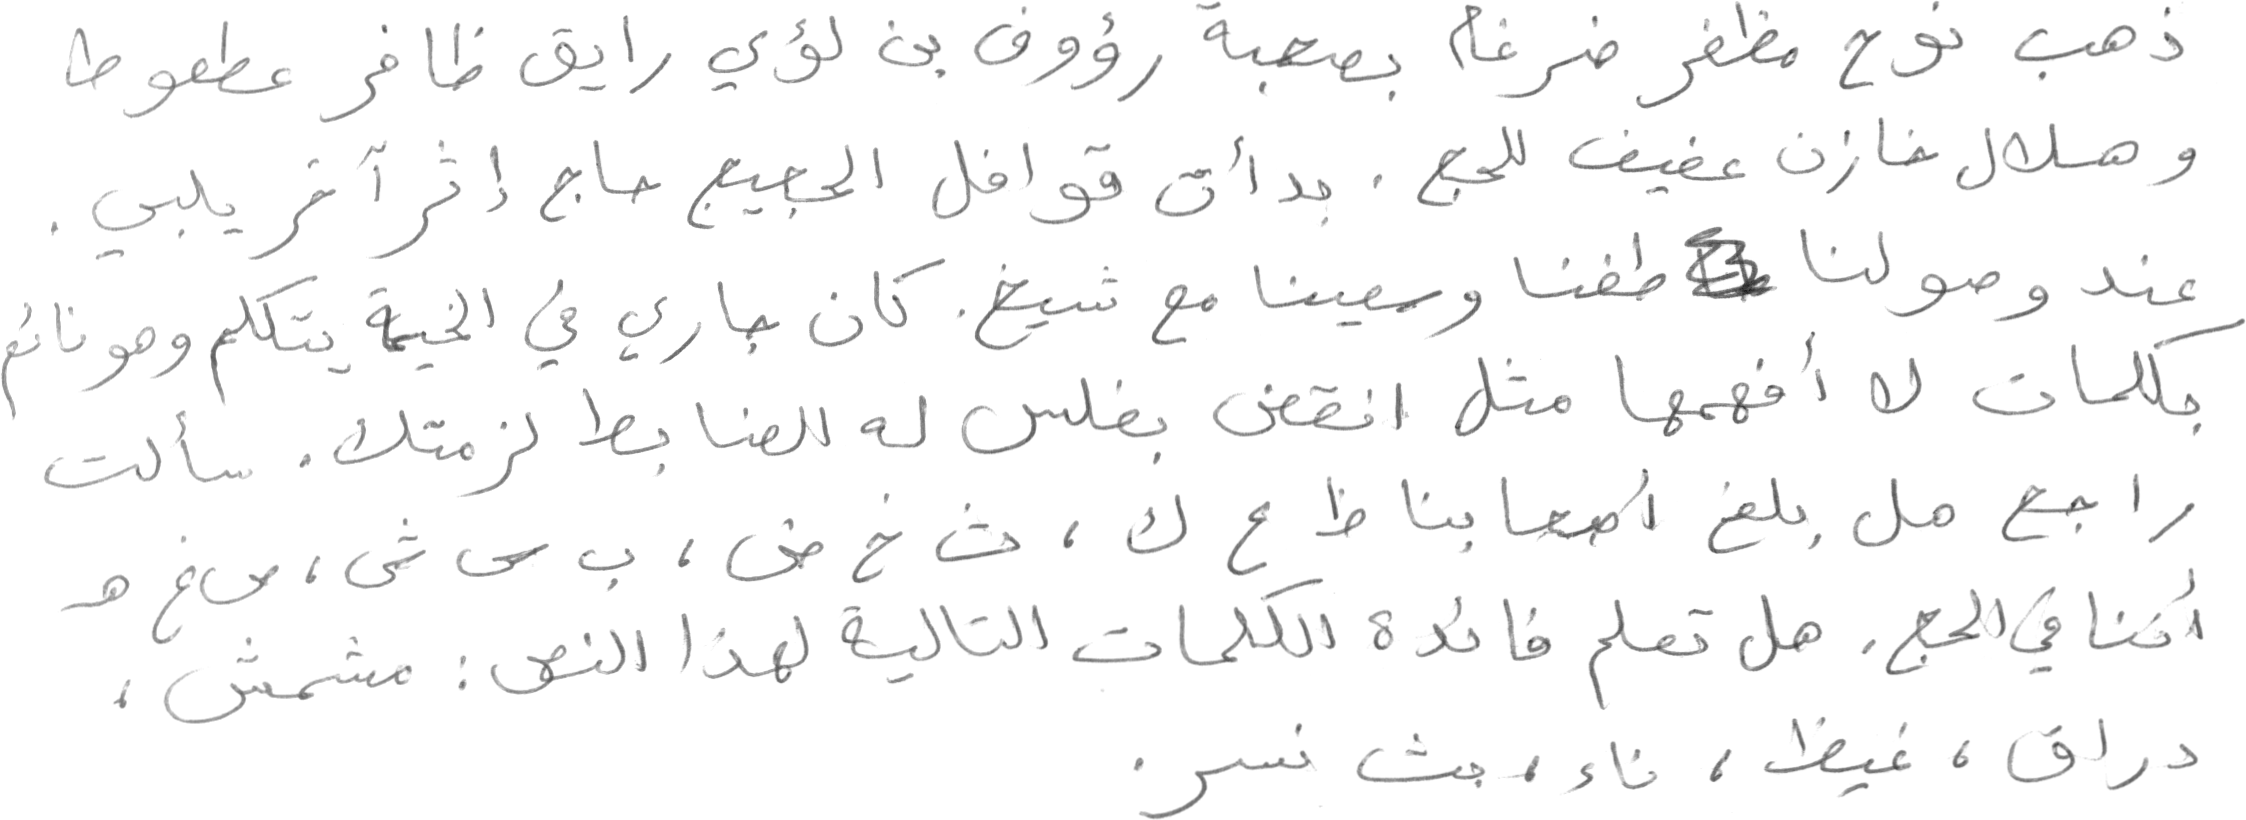 ذهب نوح مظفر ضرغام بصحبة رؤوف بن لؤي رايق ظافر عطعوط
وهلال خازن عفيف للحج. بدأت قوافل الحجيج حاج إثر آخر يلبي.
عند وصولنا طفنا وسعينا مع شيخ. كان جاري في الخيمة يتكلم وهو نائم
بكلمات لا أفهمها مثل انقض بغلس له للضابط لزمتك. سألت
راجع هل بلغ أصحابنا ظ ع ك ، ث خ ض ، ب س ش ، ص غ ه
أكنا في الحج. هل تعلم فائدة الكلمات التالية لهذا النص : مشمش ،
درلق ، غيظ ، ناء ، بث نسر.